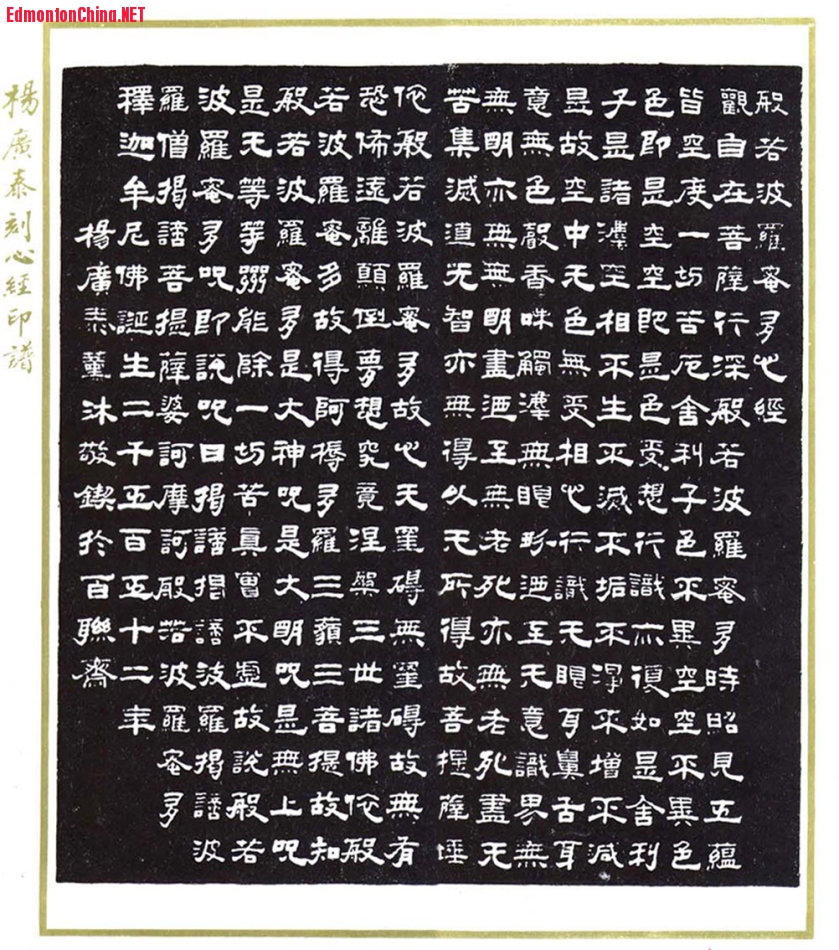 EdmontonChina.NET
般若波羅蜜多心經
觀自在菩薩行深般若波羅蜜多時照見五蘊
皆空度一切苦厄舍利子色不異空空不異色
色即是空空即是色受想行識亦復如是舍利
子是諸法空相不生不滅不垢不淨不增不減
是故空中无色無受相心行識无眼耳鼻舌身
意無色聲香味觸法無眼界迺至无意識界無
無明亦無無明盡迺至無老死亦無老死盡无
苦集滅道无智亦無得以无所得故菩提薩埵
依般若波羅蜜多故心无罣礙無罣礙故無有
恐怖遠離顛倒夢想究竟涅槃三世諸佛依般
若波羅蜜多故得阿耨多羅三藐三菩提故知
般若波羅蜜多是大神咒是大明咒是無上咒
是无等等咒能除一切苦真實不虛故說般若
波羅蜜多咒即說咒曰揭諦揭諦波羅揭諦波
羅僧揭諦菩提薩婆訶摩訶般若波羅蜜多
釋迦牟尼佛誕生二千五百五十二年
楊廣泰薰沐敬鍥於百聯齋
楊廣泰刻心經印譜